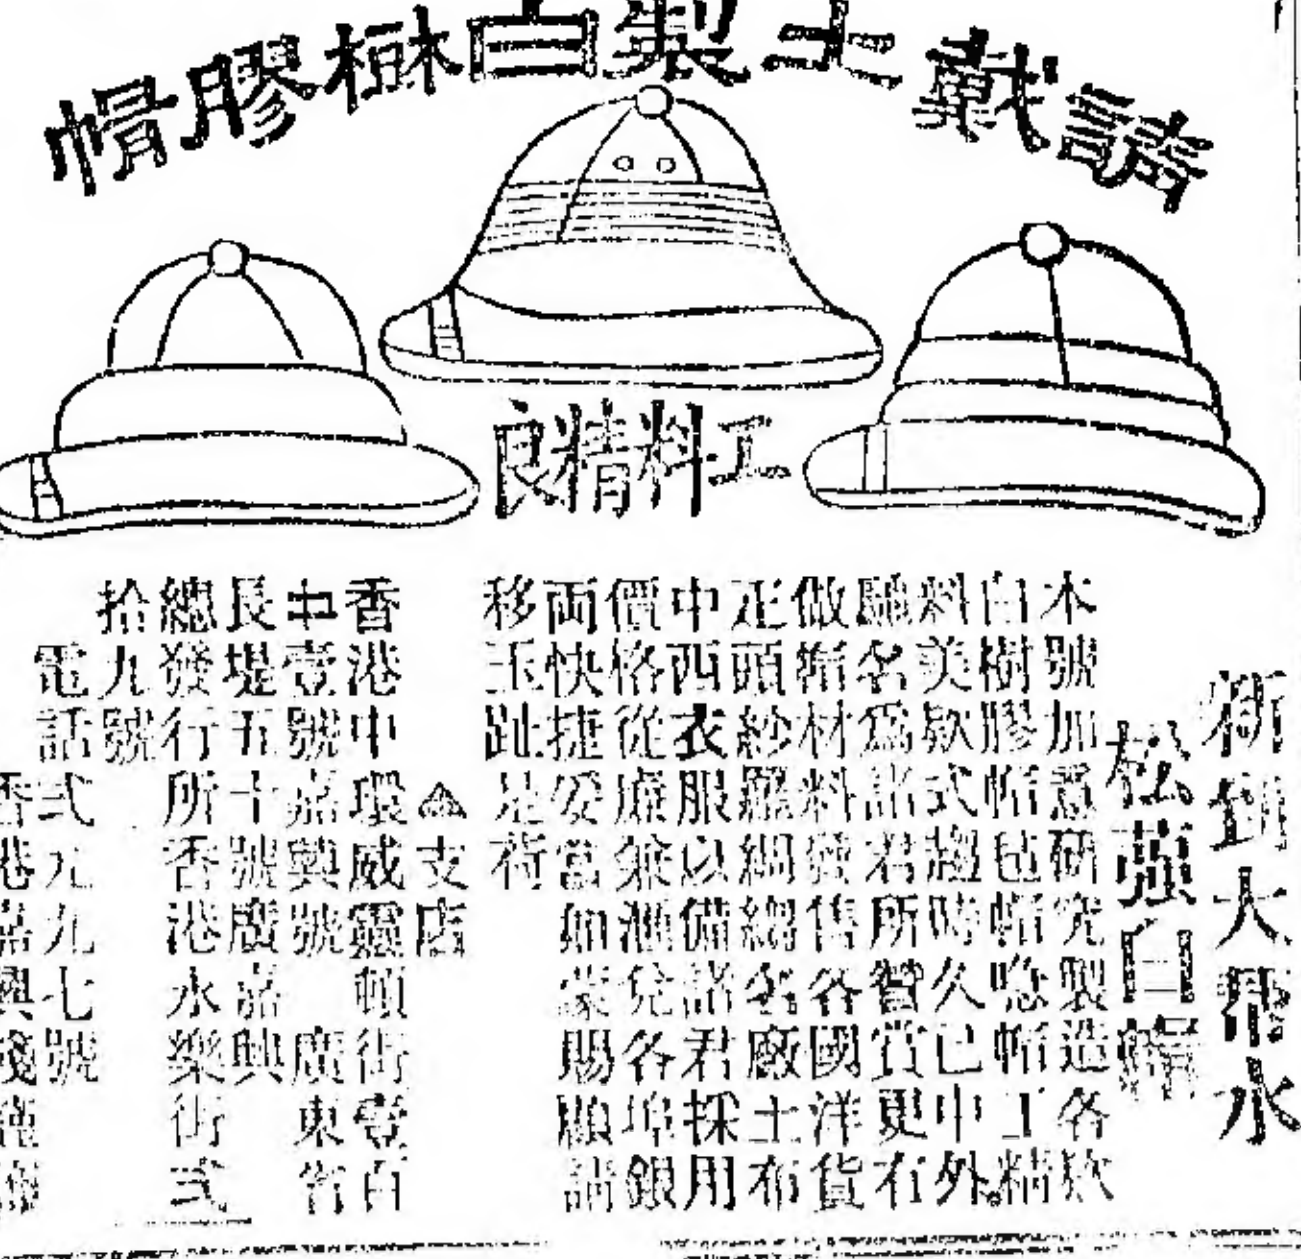 請戴土製白樹膠帽
工料精良
新到大幫水
松蕻白帽
本號加意研究製造各欵
白樹膠帽毡帽唸帽工精
料美欵式趨時久已中外
馳名爲諸君所贊賞更有
做帽材料發售各國洋貨
疋頭紗羅綢縐名廠土布
中西衣服以備諸君採用
價格從廉兼滙兌各埠銀
両快捷妥當如蒙賜顧請
移玉趾是荷
支店
香港中環威靈頓街壹百
中壹號嘉興號 廣東省
長堤五十號廣嘉興
總發行所香港永樂街弍
拾九號
電話弍元九七號
香港嘉興棧謹